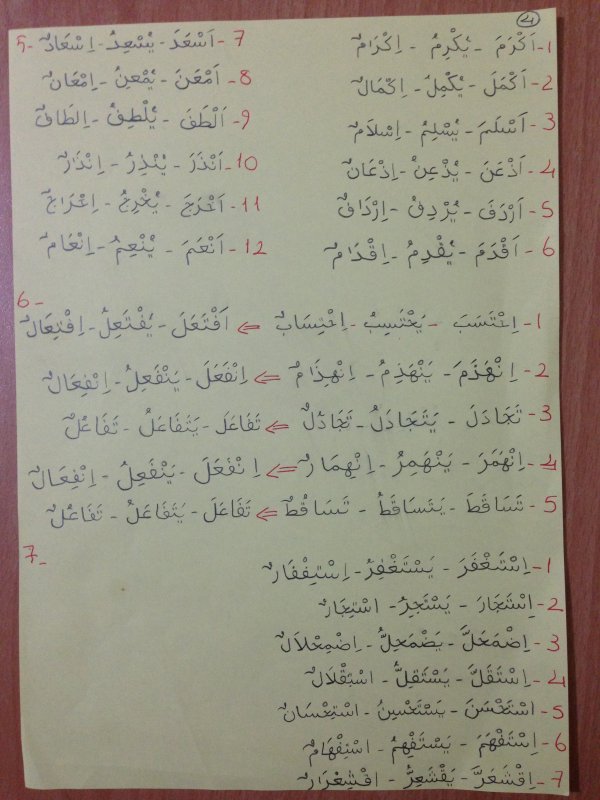 4
1- اَكْرَمَ - يُكْرِمُ - اِكْرَامٌ
2- اَكْمَلَ - يُكْمِلُ - اِكْمَالٌ
3- اَسْلَمَ - يُسْلِمُ - اِسْلَامٌ
4- اَذْعَنَ - يُذْعِنُ - اِذْعَانٌ
5- اَرْدَفَ - يُرْدِفُ - اِرْدَافٌ
6- اَقْدَمَ - يُقْدِمُ - اِقْدَامٌ
5-
7- اَسْعَدَ - يُسْعِدُ - اِسْعَادٌ
8- اَمْعَنَ - يُمْعِنُ - اِمْعَانٌ
9- اَلْطَفَ - يُلْطِفُ - اِلطَافٌ
10- اَنْذَرَ - يُنْذِرُ - اِنْذَارٌ
11- اَخْرَجَ - يُخْرِجُ - اِخْرَاجٌ
12- اَنْعَمَ - يُنْعِمُ - اِنْعَامٌ
6-
1- اِحْتَسَبَ - يَحْتَسِبُ - اِحْتِسَابٌ ⇐ اَفْتَعَلَ - يَفْتَعِلُ - اِفْتِعَالٌ
2- اِنْهَذَمَ - يَنْهَذِمُ - اِنْهِذَامٌ ⇐ اِنْفَعَلَ - يَنْفَعِلُ - اِنْفِعَالٌ
3- تَجَادَلَ - يَتَجَادَلُ - تَجَادُلٌ ⇐ تَفَاعَلَ - يَتَفَاعَلُ - تَفَاعُلٌ
4- اِنْهَمَرَ - يَنْهَمِرُ - اِنْهِمَارٌ ⇐ اِنْفَعَلَ - يَنْفَعِلُ - اِنْفِعَالٌ
5- تَسَاقَطَ - يَتَسَاقَطُ - تَسَاقُطٌ ⇐ تَفَاعَلَ - يَتَفَاعَلُ - تَفَاعُلٌ
7-
1- اِسْتَغْفَرَ - يَسْتَغْفِرُ - اِسْتِغْفَارٌ
2- اِسْتَجَارَ - يَسْتَجِرُ - اسْتِجَارٌ
3- اِضْمَحَلَّ - يَضْمَحِلُّ - اِضْمِحْلَالٌ
4- اِسْتَقَلَّ - يَسْتَقِلُّ - اسْتِقْلَالٌ
5- اسْتَحْسَنَ - يَسْتَحْسِنُ - اسْتِحْسَانٌ
6- اِسْتَفْهَمَ - يَسْتَفْهِمُ - اسْتِفْهَامٌ
7- اِقْشَعَرَّ - يَقْشَعِرُّ - اقْشِعْرَارٌ